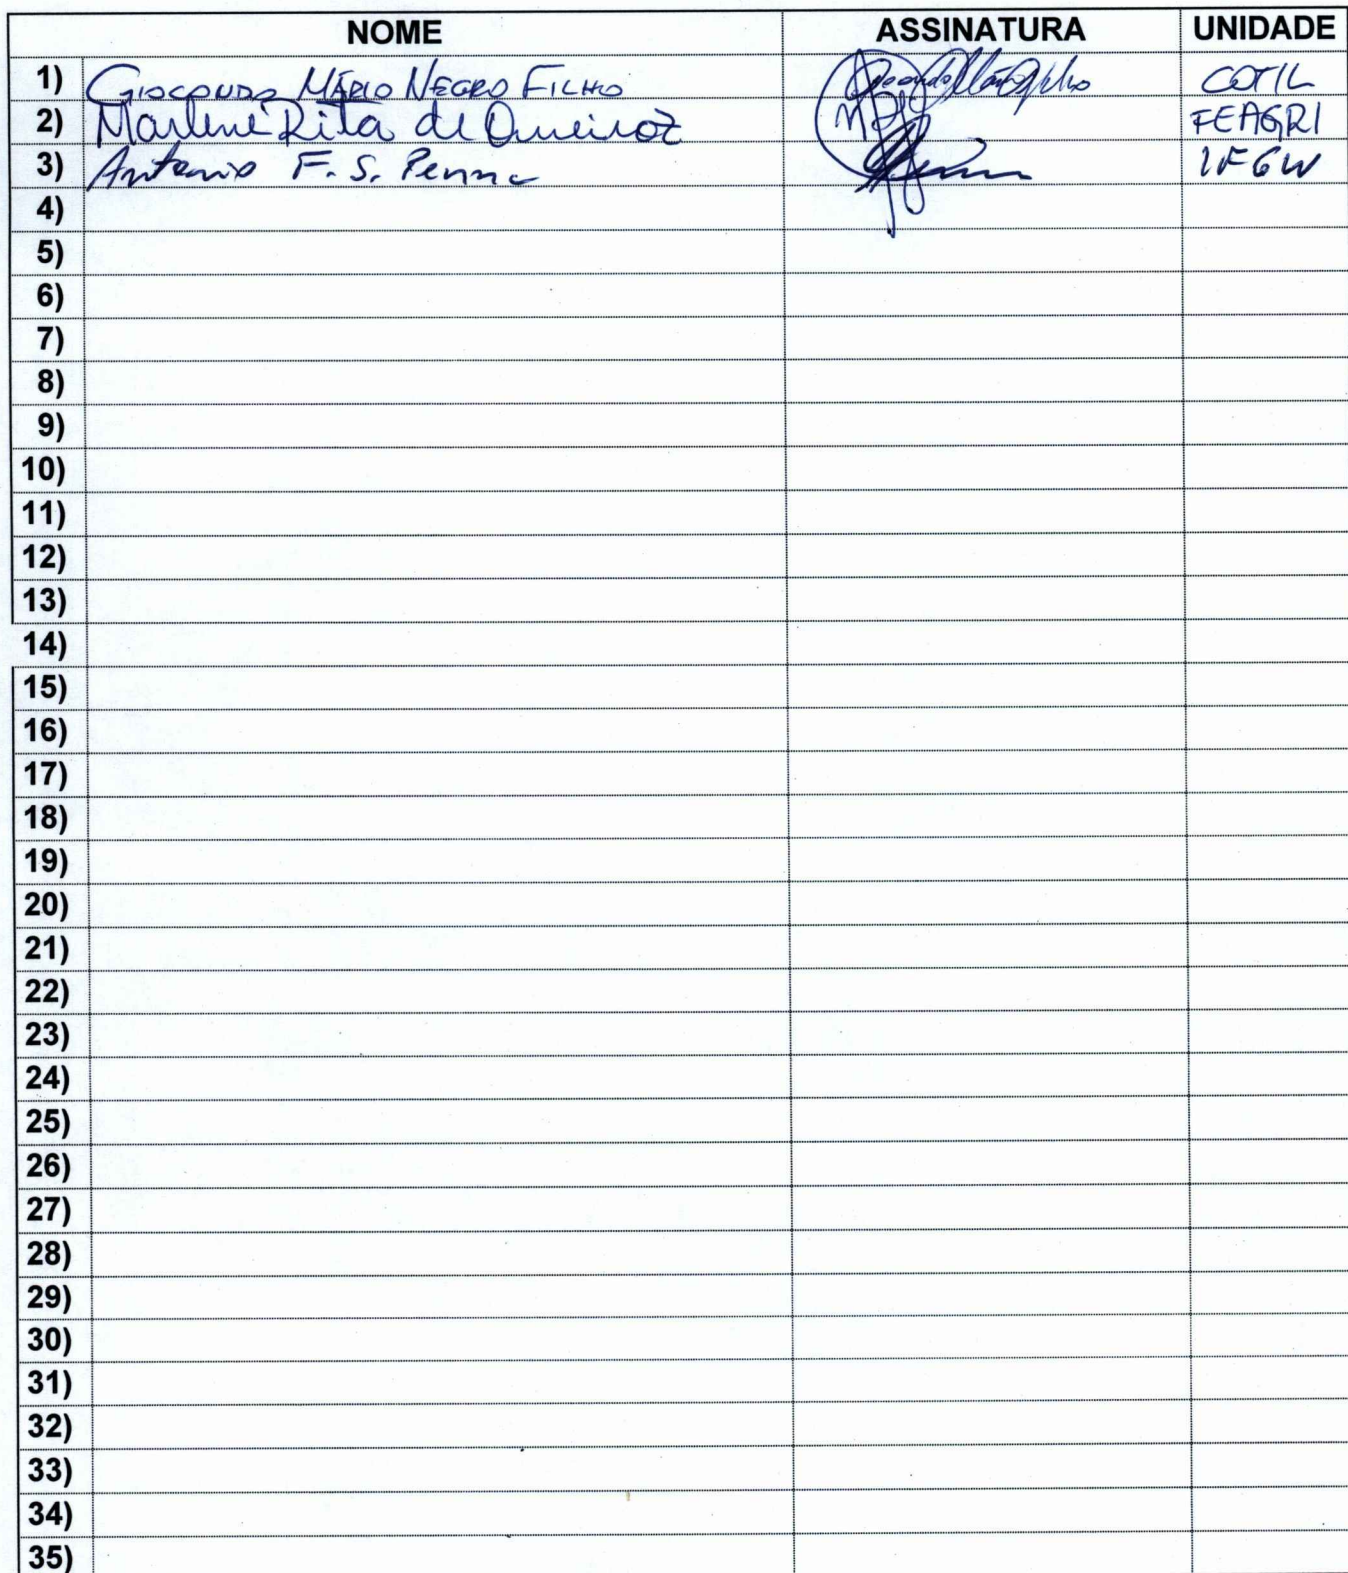 NOME ASSINATURA UNIDADE
1) Gioconдo Mário Negro Filho COTIL
2) Marlene Rita de Queiroz FEAGRI
3) Antonio F. S. Penna IFGW
4)
5)
6)
7)
8)
9)
10)
11)
12)
13)
14)
15)
16)
17)
18)
19)
20)
21)
22)
23)
24)
25)
26)
27)
28)
29)
30)
31)
32)
33)
34)
35)